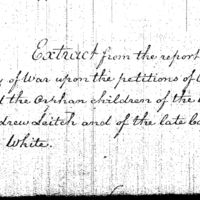 Extract from the report
of War upon the petitions of
the Orphan children of the
drew Leitch and of the late
White.